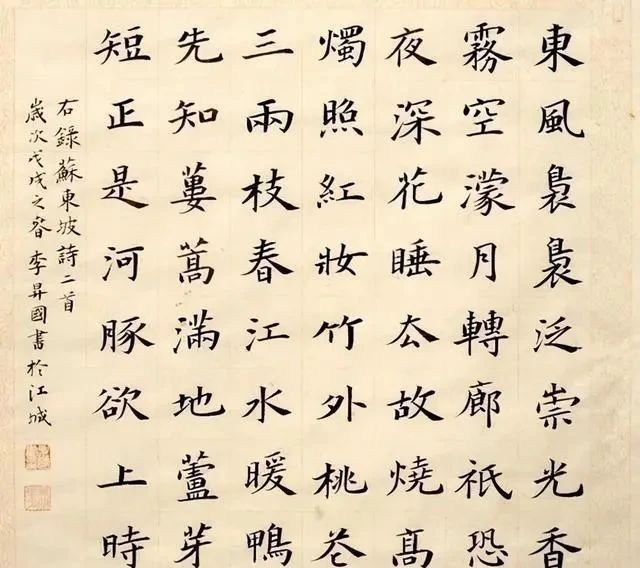 東風裊裊泛崇光香
霧空濛月轉廊祇恐
夜深花睡去故燒高
燭照紅妝竹外桃花
三兩枝春江水暖鴨
先知蔞蒿滿地蘆芽
短正是河豚欲上時
右錄蘇東坡詩二首
歲次戊戌之春李昇國書於江城